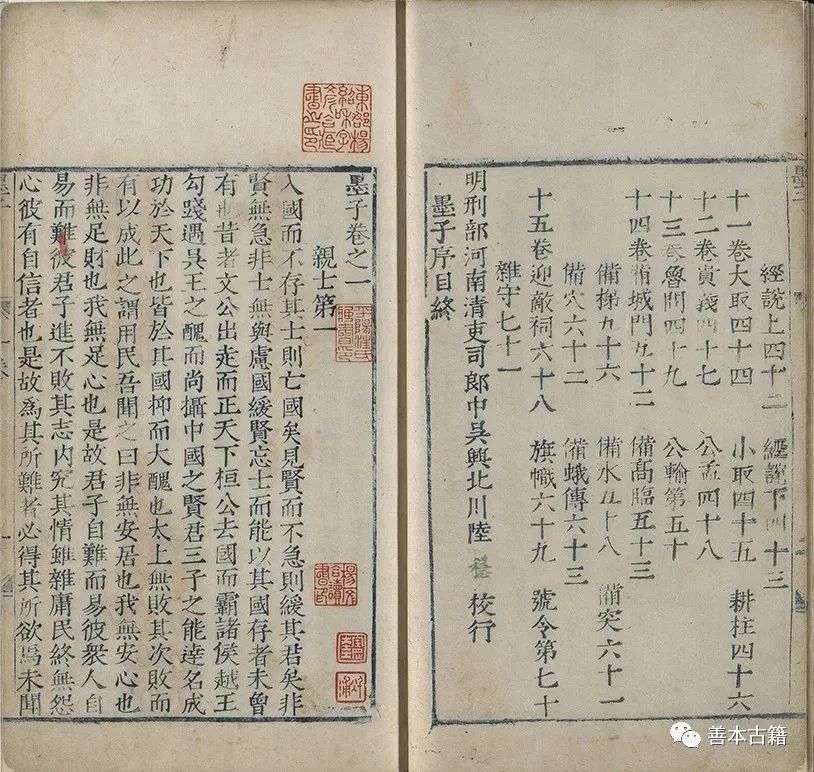 經說上四十二　經說下四十三
十一卷大取四十四　小取四十五　耕柱四十六
十二卷貴義四十七　公孟四十八
十三卷魯問四十九　公輸第五十
十四卷備城門五十二　備髙臨五十三
備梯五十六　備水五十八　備突六十一
備穴六十二　備蛾傳六十三
十五卷迎敵祠六十八　旗幟六十九　號令第七十
雜守七十一
明刑部河南清吏司郎中吳興北川陸　穩　校行
墨子序目終
墨子卷之一
親士第一
入國而不存其士則亡國矣見賢而不急則緩其君矣非
賢無急非士無與慮國緩賢忘士而能以其國存者未曾
有也昔者文公出走而正天下桓公去國而霸諸侯越王
勾踐遇吳王之醜而尚攝中國之賢君三子之能達名成
功於天下也皆於其國抑而大醜也太上無敗其次敗而
有以成此之謂用民吾聞之曰非無安居也我無安心也
非無足財也我無足心也是故君子自難而易彼衆人自
易而難彼君子進不敗其志内究其情雖雜庸民終無怨
心彼有自信者也是故爲其所難者必得其所欲焉未聞
墨子
一卷
一
東郡楊
紹和字
彥合藏
書之印
平陽汪氏
藏書印
憲奎
秋浦
善本古籍